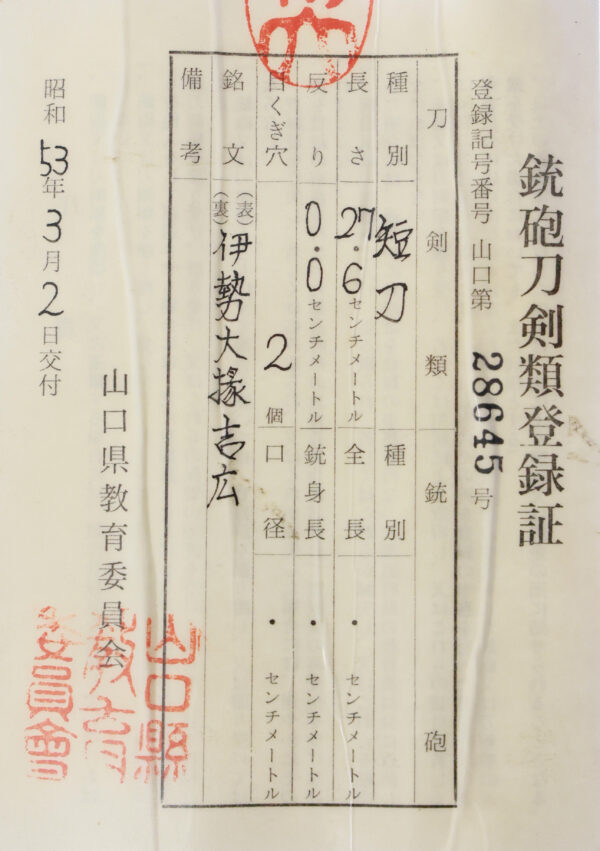 銃砲刀剣類登録証
登録記号番号 山口第 28645 号
刀剣類 銃砲
種別 短刀 種別
長さ 27.6センチメートル 全長 ・ センチメートル
反り 0.0センチメートル 銃身長 ・ センチメートル
目くぎ穴 2個 口径 ・ センチメートル
銘文 (表)
(裏) 伊勢大掾吉広
備考
山口県教育委員会
昭和53年3月2日交付
山口縣
教育
委員會